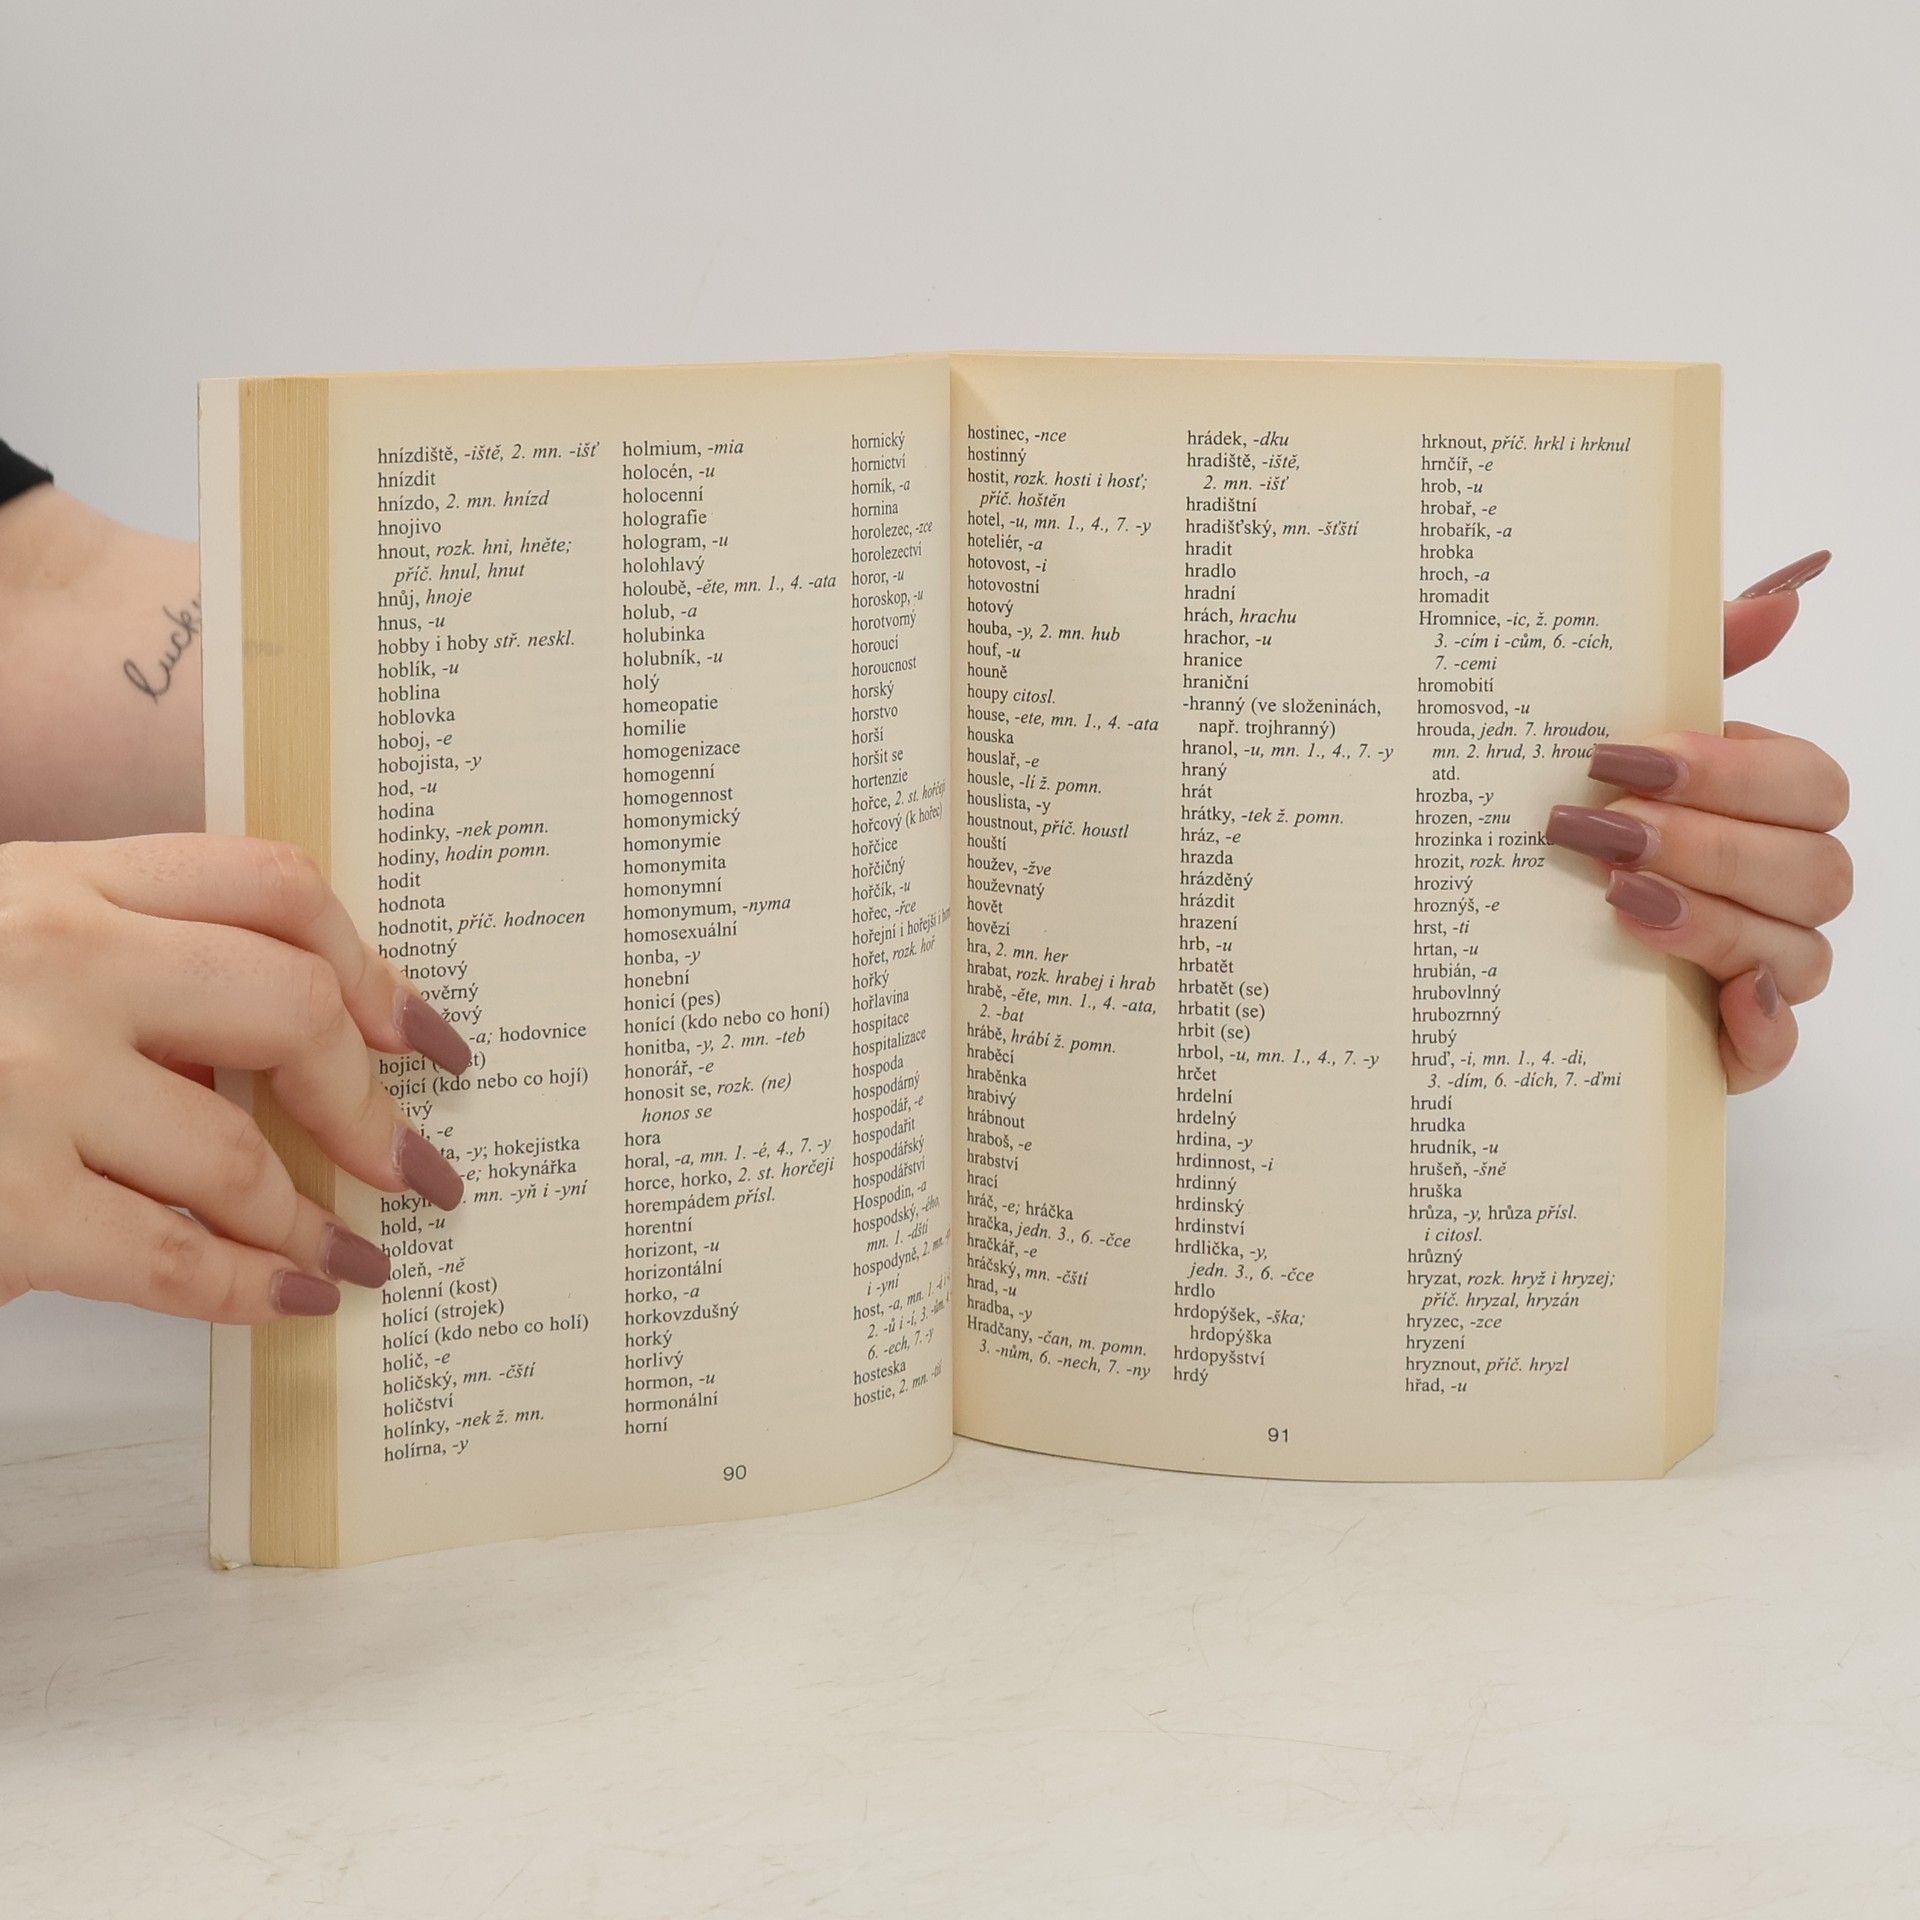 lucky
hnízdiště, -iště, 2. mn. -išť
hnízdit
hnízdo, 2. mn. hnízd
hnojivo
hnout, rozk. hni, hněte;
příč. hnul, hnut
hnůj, hnoje
hnus, -u
hobby i hoby stř. neskl.
hoblík, -u
hoblina
hoblovka
hoboj, -e
hobojista, -y
hod, -u
hodina
hodinky, -nek pomn.
hodiny, hodin pomn.
hodit
hodnota
hodnotit, příč. hodnocen
hodnotný
-a; hodovnice
hojicí
hojící (kdo nebo co hojí)
-e
-y; hokejistka
-e; hokynářka
mn. -yň i -yní
hold, -u
holdovat
holeň, -ně
holenní (kost)
holicí (strojek)
holící (kdo nebo co holí)
holič, -e
holičský, mn. -čští
holičství
holínky, -nek ž. mn.
holírna, -y
holmium, -mia
holocén, -u
holocenní
holografie
hologram, -u
holohlavý
holoubě, -ěte, mn. 1., 4. -ata
holub, -a
holubinka
holubník, -u
holý
homeopatie
homilie
homogenizace
homogenní
homogennost
homonymický
homonymie
homonymita
homonymní
homonymum, -nyma
homosexuální
honba, -y
honební
honicí (pes)
honící (kdo nebo co honí)
honitba, -y, 2. mn. -teb
honorář, -e
honosit se, rozk. (ne)
honos se
hora
horal, -a, mn. 1. -é, 4., 7. -y
horce, horko, 2. st. horčeji
horempádem přísl.
horentní
horizont, -u
horizontální
horko, -a
horkovzdušný
horký
horlivý
hormon, -u
hormonální
horní
hornický
hornictví
horník, -a
hornina
horolezec, -zce
horolezectví
horor, -u
horoskop, -u
horotvorný
horoucí
horoucnost
horský
horstvo
horší
horšit se
hortenzie
hořce, 2. st. hořčeji
hořcový (k hořec)
hořčice
hořčičný
hořčík, -u
hořec, -řce
hořejní i hořejší i
hořet, rozk. hoř
hořký
hořlavina
hospitace
hospitalizace
hospoda
hospodárný
hospodář, -e
hospodařit
hospodářský
hospodářství
Hospodin, -a
hospodský, -ého,
mn. 1. -dští
hospodyně, 2. mn.
i -yní
host, -a, mn. 1.
2. -ů i -í, 3.
6. -ech, 7. -y
hosteska
hostie, 2. mn. -tií
90
hostinec, -nce
hostinný
hostit, rozk. hosti i hosť;
příč. hoštěn
hotel, -u, mn. 1., 4., 7. -y
hoteliér, -a
hotovost, -i
hotovostní
hotový
houba, -y, 2. mn. hub
houf, -u
houně
houpy citosl.
house, -ete, mn. 1., 4. -ata
houska
houslař, -e
housle, -lí ž. pomn.
houslista, -y
houstnout, příč. houstl
houští
houžev, -žve
houževnatý
hovět
hovězí
hra, 2. mn. her
hrabat, rozk. hrabej i hrab
hrabě, -ěte, mn. 1., 4. -ata,
2. -bat
hrábě, hrábí ž. pomn.
hraběcí
hraběnka
hrabivý
hrábnout
hraboš, -e
hrabství
hrací
hráč, -e; hráčka
hračka, jedn. 3., 6. -čce
hračkář, -e
hráčský, mn. -čští
hrad, -u
hradba, -y
Hradčany, -čan, m. pomn.
3. -nům, 6. -nech, 7. -ny
hrádek, -dku
hradiště, -iště,
2. mn. -išť
hradištní
hradišťský, mn. -šťští
hradit
hradlo
hradní
hrách, hrachu
hrachor, -u
hranice
hraniční
-hranný (ve složeninách,
např. trojhranný)
hranol, -u, mn. 1., 4., 7. -y
hraný
hrát
hrátky, -tek ž. pomn.
hráz, -e
hrazda
hrázděný
hrázdit
hrazení
hrb, -u
hrbatět
hrbatět (se)
hrbatit (se)
hrbit (se)
hrbol, -u, mn. 1., 4., 7. -y
hrčet
hrdelní
hrdelný
hrdina, -y
hrdinnost, -i
hrdinný
hrdinský
hrdinství
hrdlička, -y,
jedn. 3., 6. -čce
hrdlo
hrdopýšek, -ška;
hrdopýška
hrdopyšství
hrdý
hrknout, příč. hrkl i hrknul
hrnčíř, -e
hrob, -u
hrobař, -e
hrobařík, -a
hrobka
hroch, -a
hromadit
Hromnice, -ic, ž. pomn.
3. -cím i -cům, 6. -cích,
7. -cemi
hromobití
hromosvod, -u
hrouda, jedn. 7. hroudou,
mn. 2. hrud, 3. hroud
atd.
hrozba, -y
hrozen, -znu
hrozinka i rozinka
hrozit, rozk. hroz
hrozivý
hroznýš, -e
hrst, -ti
hrtan, -u
hrubián, -a
hrubovlnný
hrubozrnný
hrubý
hruď, -i, mn. 1., 4. -di,
3. -dím, 6. -dích, 7. -ďmi
hrudí
hrudka
hrudník, -u
hrušeň, -šně
hruška
hrůza, -y, hrůza přísl.
i citosl.
hrůzný
hryzat, rozk. hryž i hryzej;
příč. hryzal, hryzán
hryzec, -zce
hryzení
hryznout, příč. hryzl
hřad, -u
91